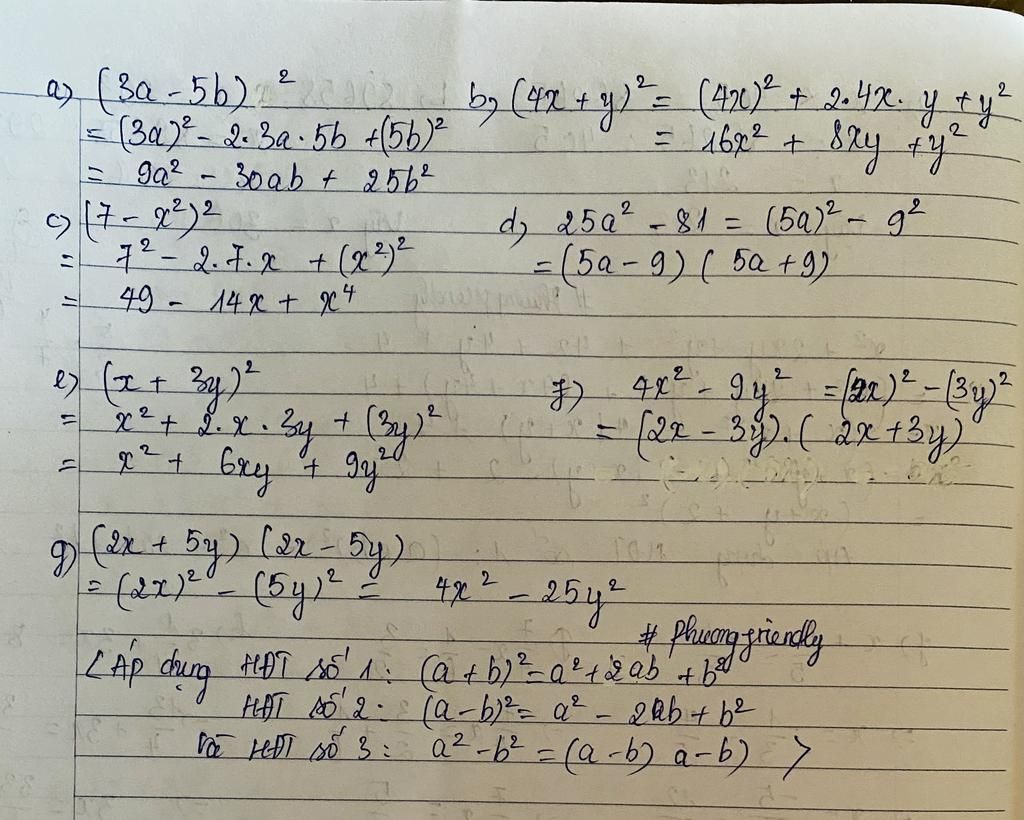 a) (3a - 5b)²
= (3a)² - 2.3a.5b + (5b)²
= 9a² - 30ab + 25b²
b) (4x + y)² = (4x)² + 2.4x.y + y²
= 16x² + 8xy + y²
c) (7 - x²)²
= 7² - 2.7.x + (x²)²
= 49 - 14x + x⁴
d) 25a² - 81 = (5a)² - 9²
= (5a - 9) (5a + 9)
e) (x + 3y)²
= x² + 2.x.3y + (3y)²
= x² + 6xy + 9y²
f) 4x² - 9y² = (2x)² - (3y)²
= (2x - 3y).(2x + 3y)
g) (2x + 5y) (2x - 5y)
= (2x)² - (5y)² = 4x² - 25y²
# Phuongfriendly
< Áp dụng HĐT số 1: (a + b)² = a² + 2ab + b²
HĐT số 2: (a - b)² = a² - 2ab + b²
Và HĐT số 3: a² - b² = (a - b) a - b) >